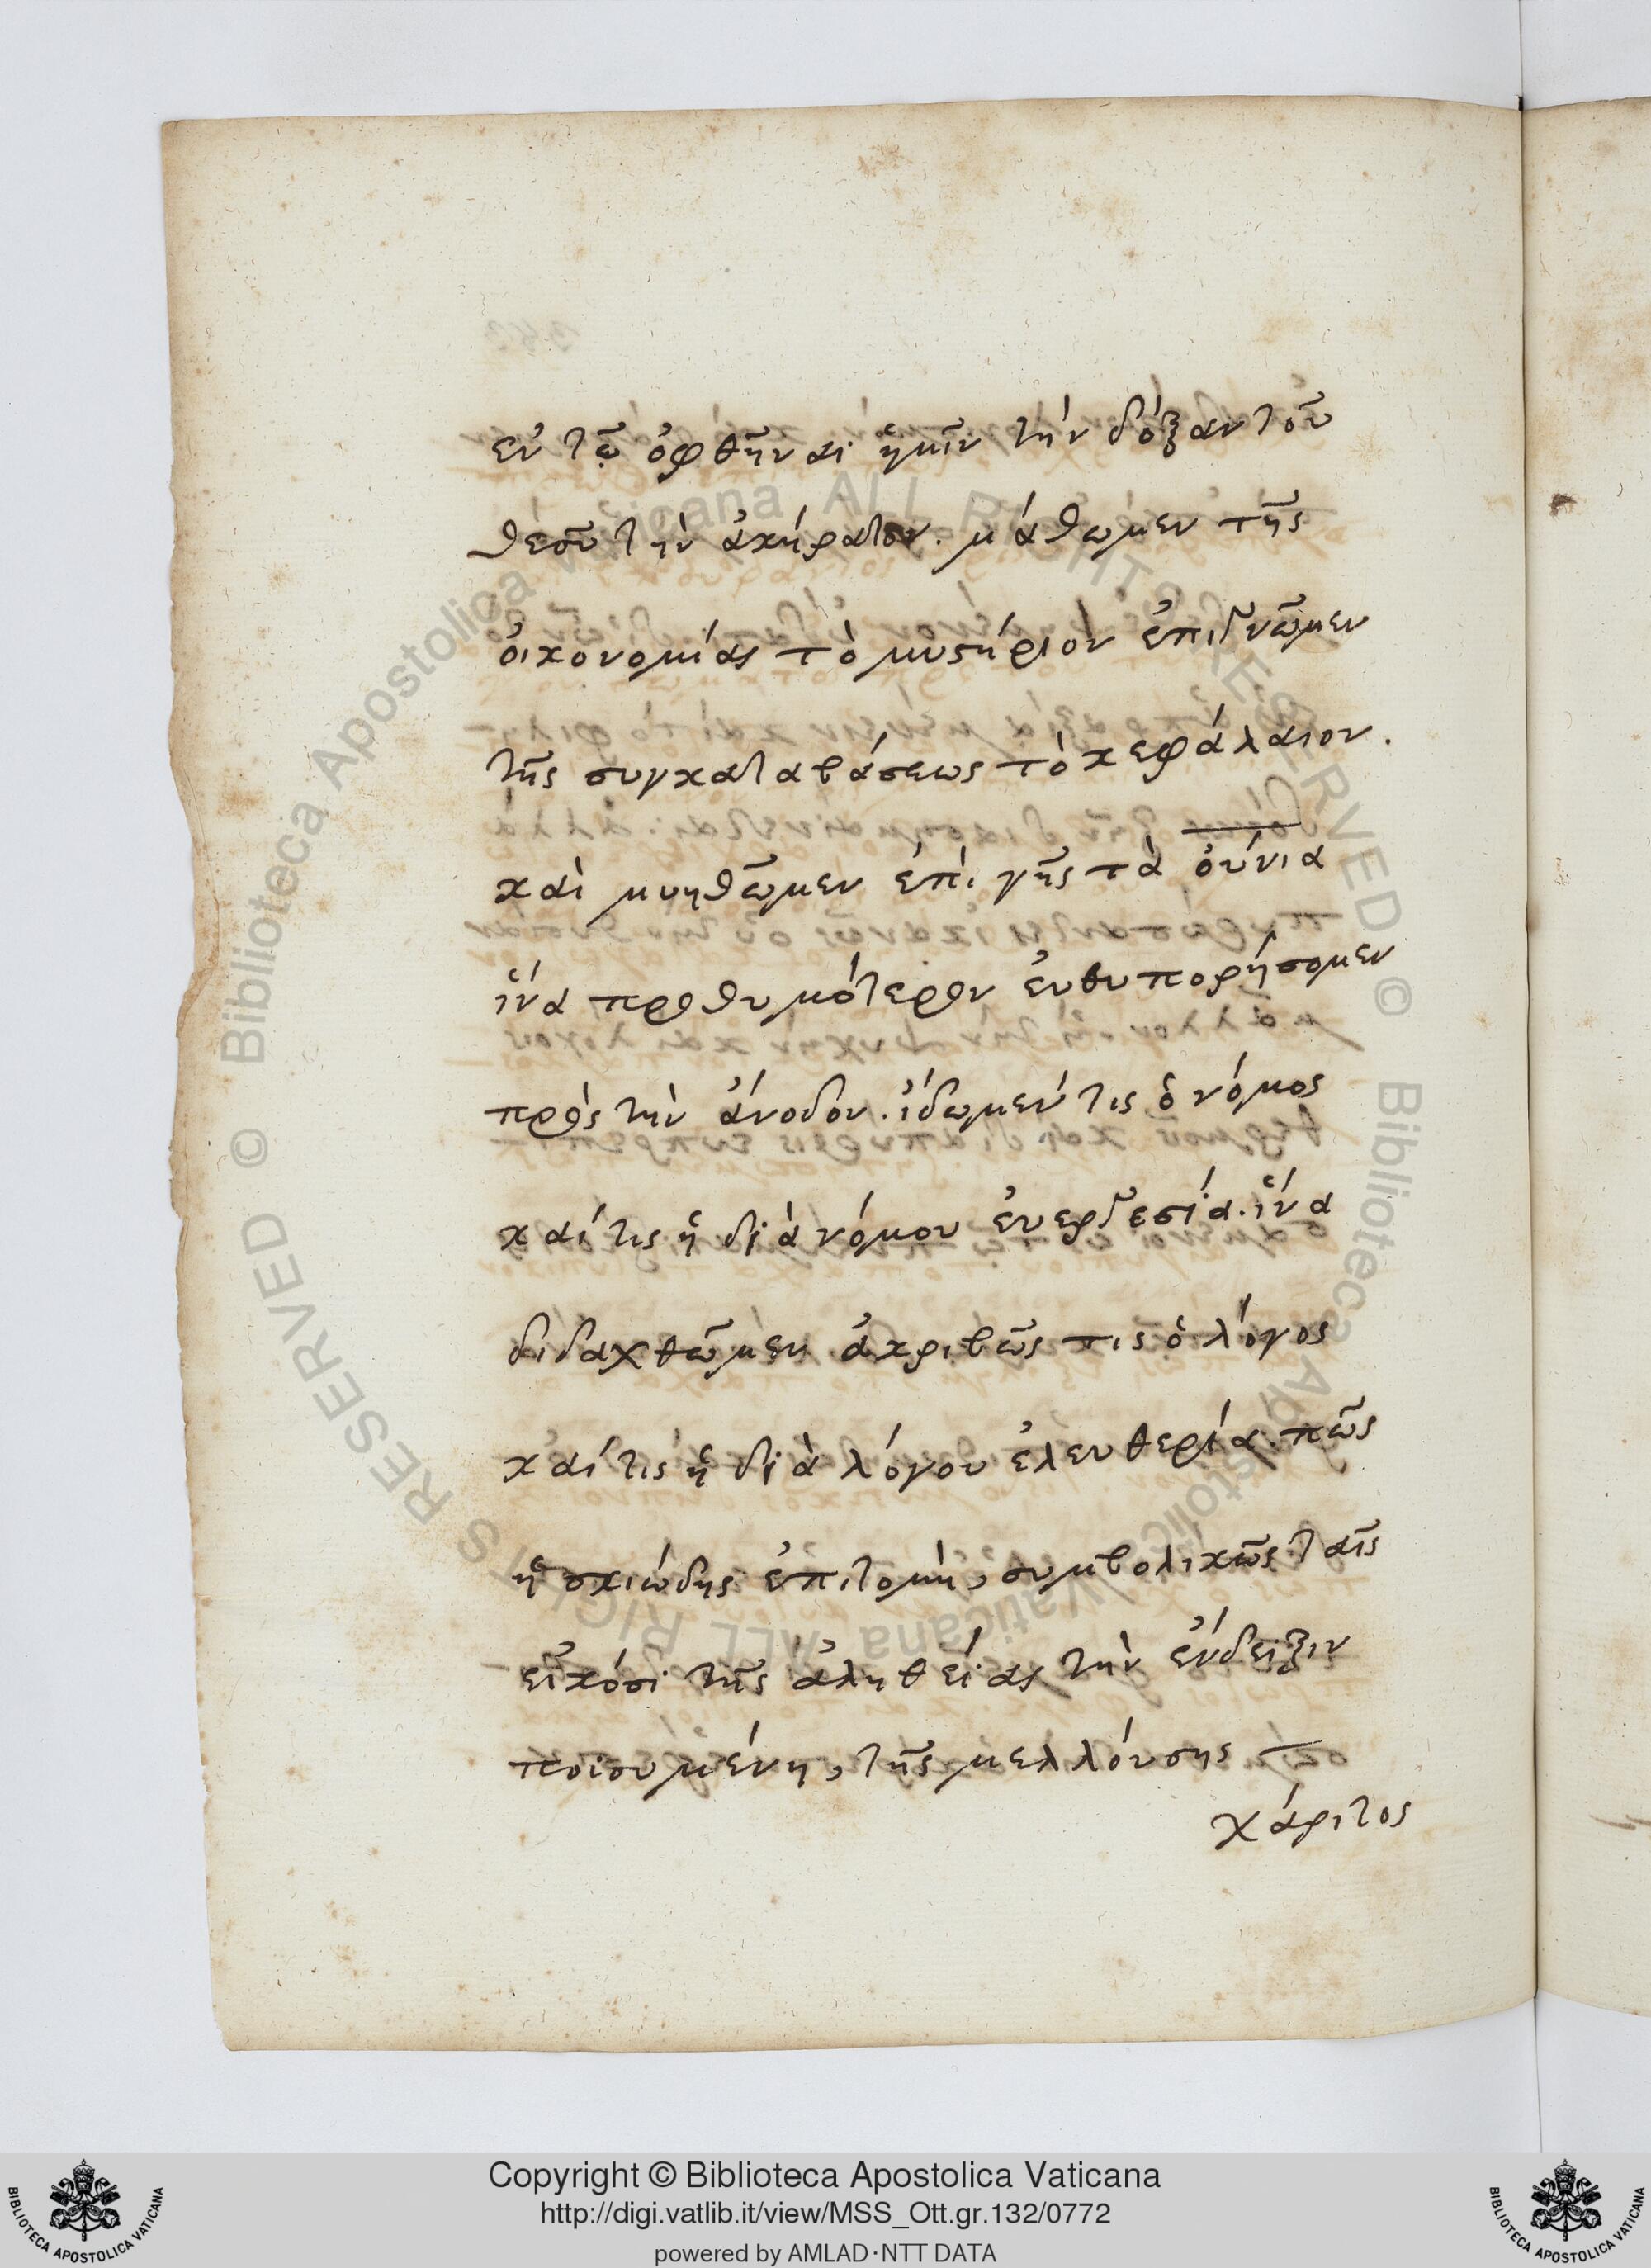 ἐν τῷ ὀφθῆναι ἡμῖν τὴν δόξαν τοῦ
θεοῦ τὴν ἀκήρατον. μάθωμεν τῆς
οἰκονομίας τὸ μυστήριον ἐπιγνῶμεν
τῆς συγκαταβάσεως τὸ κεφάλαιον.
καὶ μυηθῶμεν ἐπὶ γῆς τὰ οὐνια
ἵνα προθυμότερον εὐθυπορήσομεν
πρὸς τὴν ἄνοδον. ἴδωμεν τίς ὁ νόμος
καί τις ἡ διὰ νόμου εὐεργεσία. ἵνα
διδαχθῶμεν ἀκριβῶς τις ὁ λόγος
καί τις ἡ διὰ λόγου ἐλευθερία. πῶς
ἡ σκιώδης ἐπιτομὴ, συμβολικῶς ταῖς
εἰκόσι τῆς ἀληθείας τὴν ἔνδειξιν
ποιουμένη, τῆς μελλούσης
χάριτος
© Biblioteca Apostolica Vaticana ALL RIGHTS RESERVED © Biblioteca Apostolica Vaticana ALL RIGHTS RESERVED
Copyright © Biblioteca Apostolica Vaticana
http://digi.vatlib.it/view/MSS_Ott.gr.132/0772
powered by AMLAD·NTT DATA
BIBLIOTECA APOSTOLICA VATICANA
BIBLIOTECA APOSTOLICA VATICANA